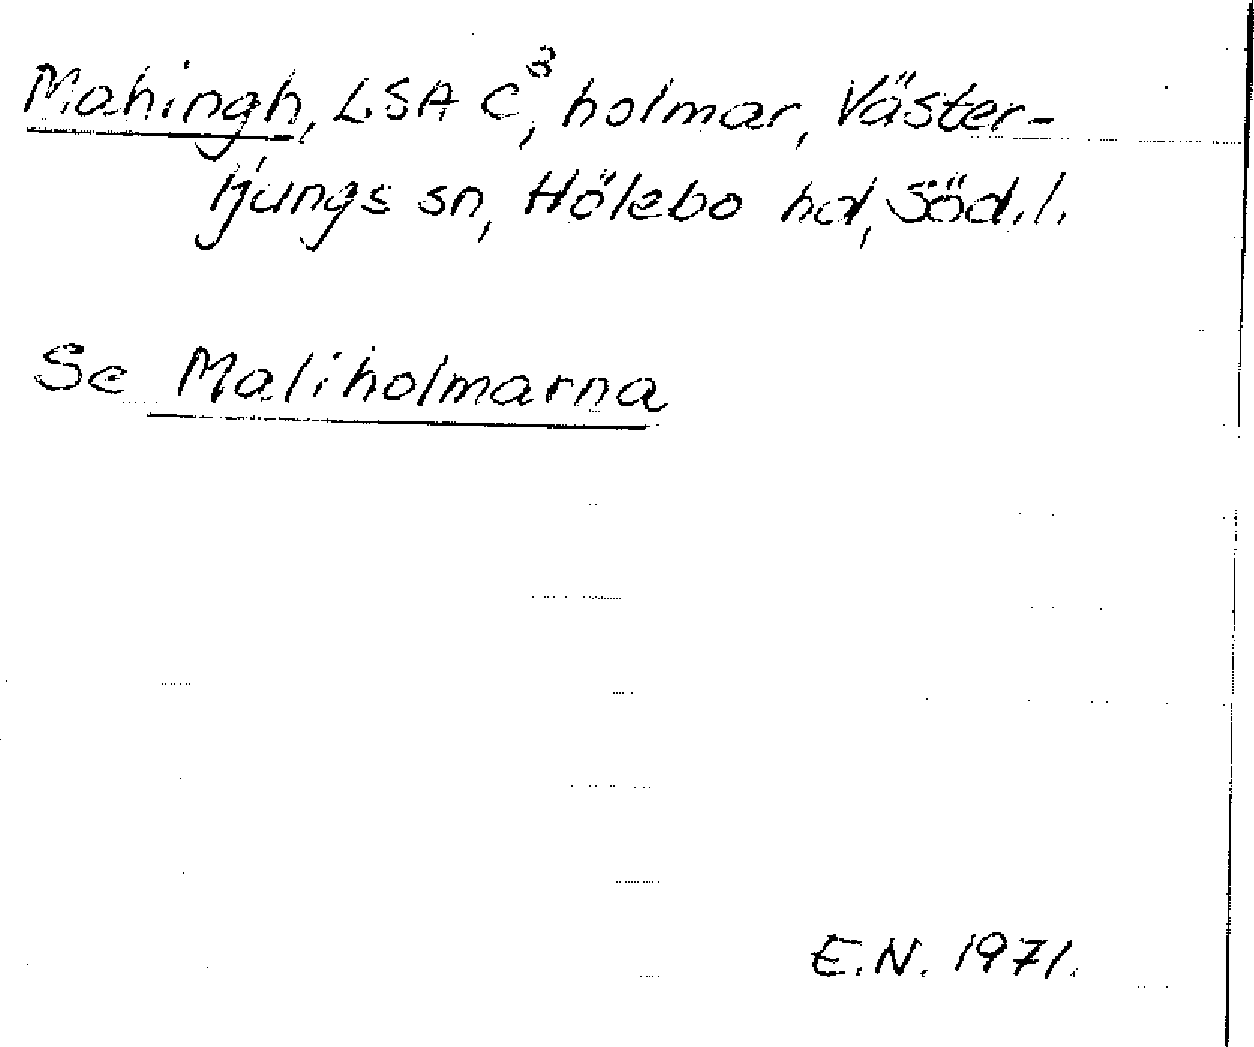 Mahingh, LSA C³, holmar, Väster-
ljungs sn, Hölebo hd, Söd.l.
Se Maliholmarna
E.N. 1971.